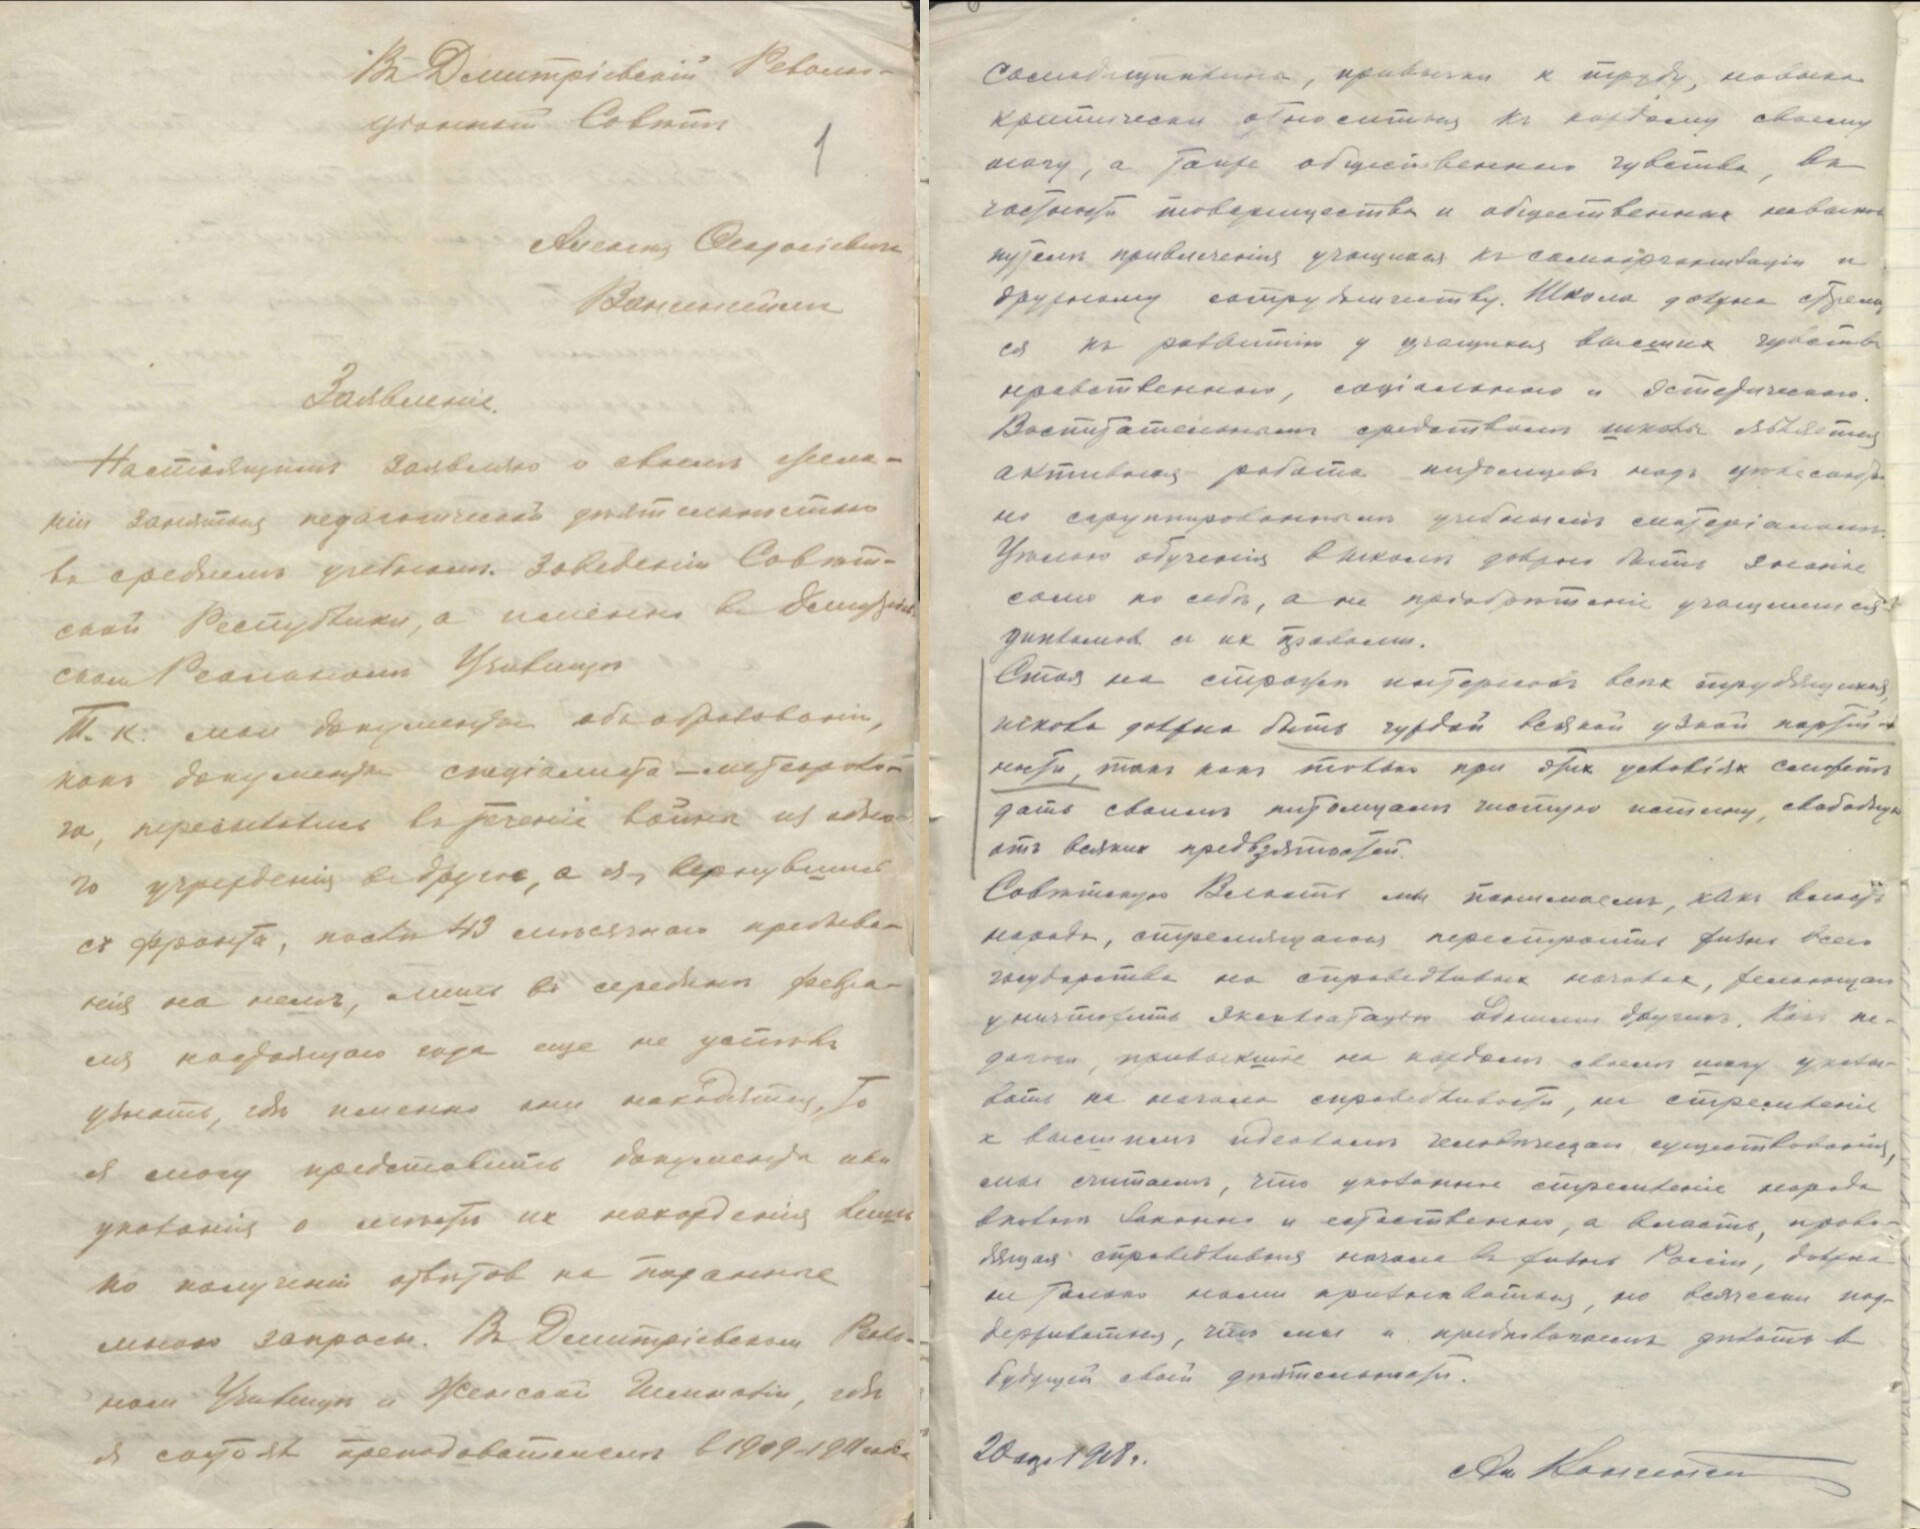 Въ Дмитріевскій Револю-
ціонный Совѣтъ
1
Алексѣя
Заявленіе.
Настоящимъ заявляю о своемъ жела-
ніи заняться педагогической дѣятельностью
въ среднемъ учебномъ заведеніи Совѣт-
ской Республики, а именно въ Дмитріев
скомъ Реальномъ Училищѣ
Т. к. мои документы объ образованіи,
какъ документы спеціалиста-метеороло-
га, пересылались въ теченіе войны изъ одно-
го учрежденія въ другое, а я, вернувшись
съ фронта, послѣ 43 мѣсячнаго пребыва-
нія на немъ, лишь въ серединѣ февра-
ля настоящаго года еще не успѣлъ
узнать, гдѣ именно они находятся, то
я могу представить документы или
указанія о мѣстѣ ихъ нахожденія лишь
по полученіи отвѣтовъ на поданные
мною запросы. Въ Дмитріевскомъ Реаль-
номъ Училищѣ и Женской Гимназіи, гдѣ
я состоялъ преподавателемъ въ 1909-1911 годах
самодисциплины, привычки къ труду, навыка
критически относиться къ каждому своему
шагу, а также общественнаго чувства, въ
частности товарищества и общественныхъ навыковъ
путемъ привлеченія учащихся къ самоорганизаціи и
дружному сотрудничеству. Школа должна стремить
ся къ развитію у учащихся высшихъ чувствъ
нравственнаго, соціальнаго и эстетическаго.
Воспитательнымъ средствомъ школы является
активная работа питомцевъ надъ цѣлесообраз
но сгруппированнымъ учебнымъ матеріаломъ.
Цѣлью обученія въ школѣ должно быть знаніе
само по себѣ, а не пріобрѣтеніе учащимися
дипломовъ съ ихъ правами.
Стоя на стражѣ интересовъ всѣхъ трудящихся,
школа должна быть чуждой всякой узкой партій-
ности, такъ какъ только при этихъ условіяхъ сможетъ
дать своимъ питомцамъ чистую истину, свободную
отъ всякихъ предвзятостей.
Совѣтскую Власть мы понимаемъ, какъ власть
народа, стремящагося перестроить жизнь всего
государства на справедливыхъ началахъ, желающаго
уничтожить эксплоатацію однихъ другими. Какъ пе-
дагоги, привыкшіе на каждомъ своемъ шагу указы-
вать на начала справедливости, на стремленіе
къ высшимъ идеаламъ человѣческаго существованія,
мы считаемъ, что указанное стремленіе народа
вполнѣ законно и естественно, а власть, прово-
дящая справедливыя начала въ жизнь Россіи, должна
не только нами признаваться, но всячески под-
держиваться, что мы и предполагаемъ дѣлать въ
будущей своей дѣятельности.
20 1918 г.
Ал